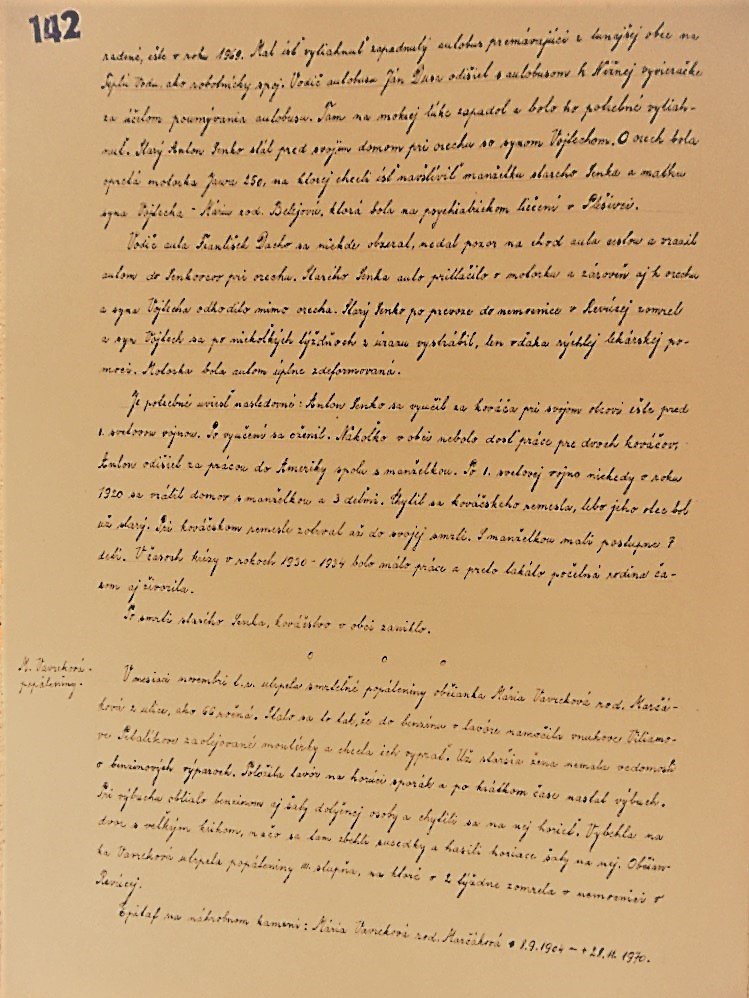 142
radené, ešte v roku 1969. Mal ísť vytiahnuť zapadnutý autobus premávajúci z tunajšej obce na
Teplú Vodu, ako robotnícky spoj. Vodič autobusu Ján Dusa odišiel s autobusom k Nižnej vyvieračke
za účelom poumývania autobusu. Tam na mokrej lúke zapadol a bolo ho potrebné vytiah-
nuť. Starý Anton Senko stál pred svojim domom pri orechu so synom Vojtechom. O orech bola
opretá motorka Jawa 250, na ktorej chceli ísť navštíviť manželku starého Senka a matku
syna Vojtecha - Máriu rod. Belejovú, ktorá bola na psychiatrickom liečení v Plešivci.
Vodič auta František Dacho sa niekde obzeral, nedal pozor na chod auta cestou a vrazil
autom do Senkovcov pri orechu. Starého Senka auto pritlačilo o motorku a zároveň aj k orechu
a syna Vojtecha odhodilo mimo orecha. Starý Senko po prevoze do nemocnice v Revúcej zomrel
a syn Vojtech sa po niekoľkých týždňoch z úrazu vystrábil, len vďaka rýchlej lekárskej po-
moci. Motorka bola autom úplne zdeformovaná.
Je potrebné uviesť nasledovné: Anton Senko sa vyučil za kováča pri svojom otcovi ešte pred
1. svetovou vojnou. Po vyučení sa oženil. Nakoľko v obci nebolo dosť práce pre dvoch kováčov,
Anton odišiel za prácou do Ameriky spolu s manželkou. Po 1. svetovej vojne niekedy v roku
1920 sa vrátil domov s manželkou a 3 deťmi. Chytil sa kováčskeho remesla, lebo jeho otec bol
už starý. Pri kováčskom remesle zotrval až do svojej smrti. S manželkou mali postupne 7
detí. V časoch krízy v rokoch 1930 - 1934 bolo málo práce a preto takáto početná rodina ča-
som aj živorila.
Po smrti starého Senka, kováčstvo v obci zaniklo.
M. Vavreková -
popáleniny.
V mesiaci novembri t. r. utrpela smrteľné popáleniny občianka Mária Vavreková rod. Marčá-
ková z ulice, ako 66 ročná. Stalo sa to tak, že do benzínu v lavóre namočila vnukove Viliamo-
ve Petalíkove zaolejované montérky a chcela ich vyprať. Už staršia žena nemala vedomosti
o benzínových výparoch. Položila lavór na horúci sporák a po krátkom čase nastal výbuch.
Pri výbuchu oblialo benzínom aj šaty dotyčnej osoby a chytili sa na nej horieť. Vybehla na
dvor s veľkým krikom, načo sa tam zbehli susedky a hasili horiace šaty na nej. Občian-
ka Vavreková utrpela popáleniny III. stupňa, na ktoré o 2 týždne zomrela v nemocnici v
Revúcej.
Epitaf na náhrobnom kameni: Mária Vavreková rod. Marčáková * 8.9.1904 - + 28.11.1970.